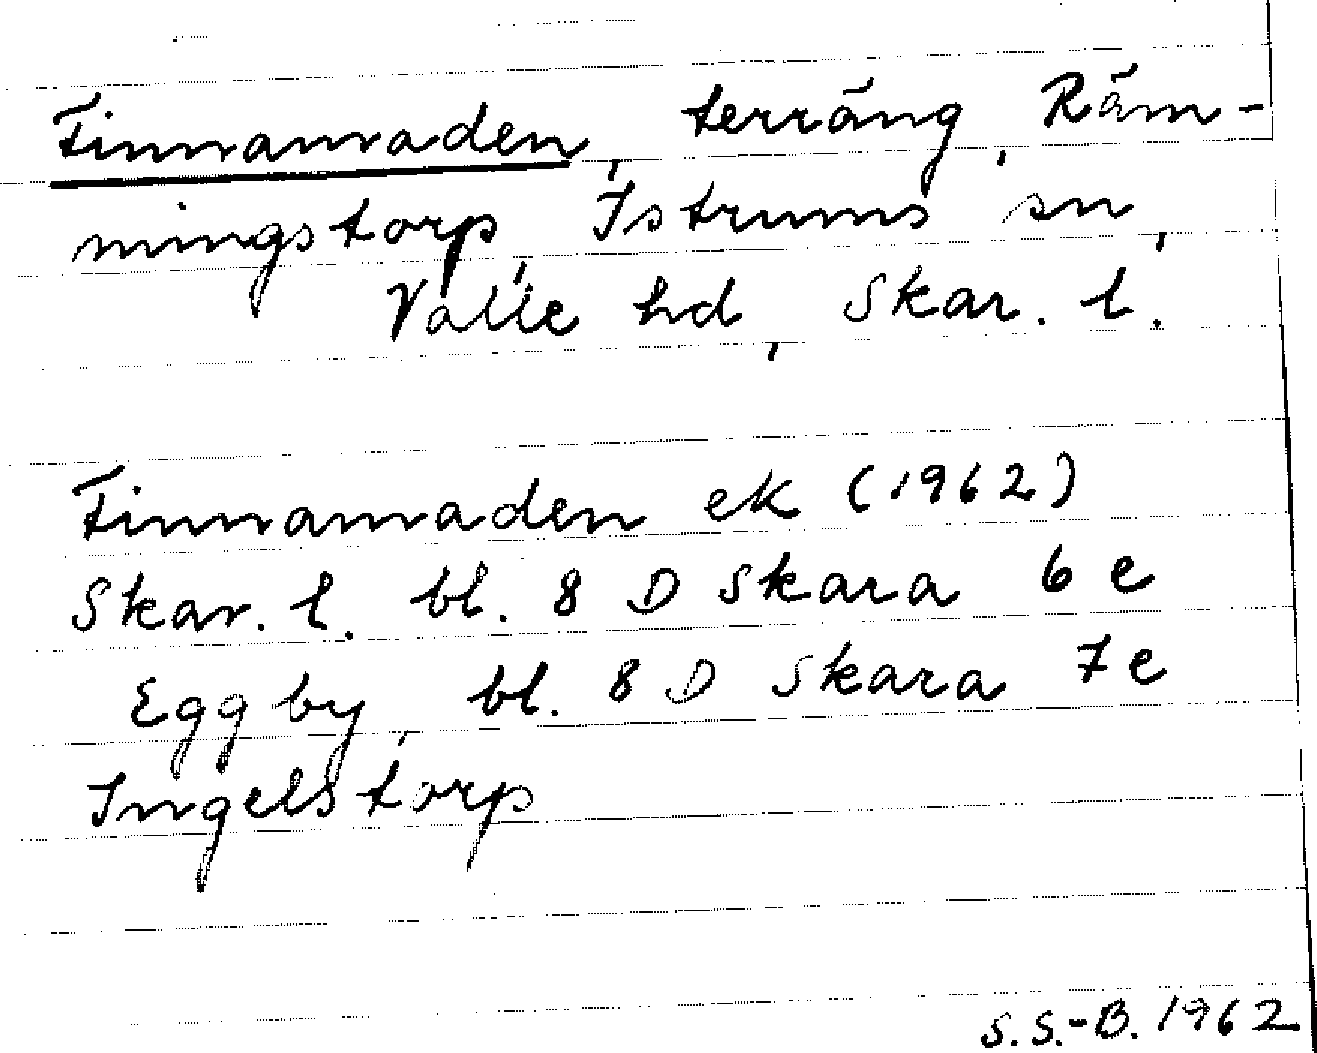 Finnamaden, terräng, Räm-
mingstorp, Istrums sn,
Valle hd, Skar. l.
Finnamaden ek (1962)
Skar. l. bl. 8 D Skara 6 e
Eggby, bl. 8 D Skara 7 e
Ingelstorp
S.S.-B. 1962